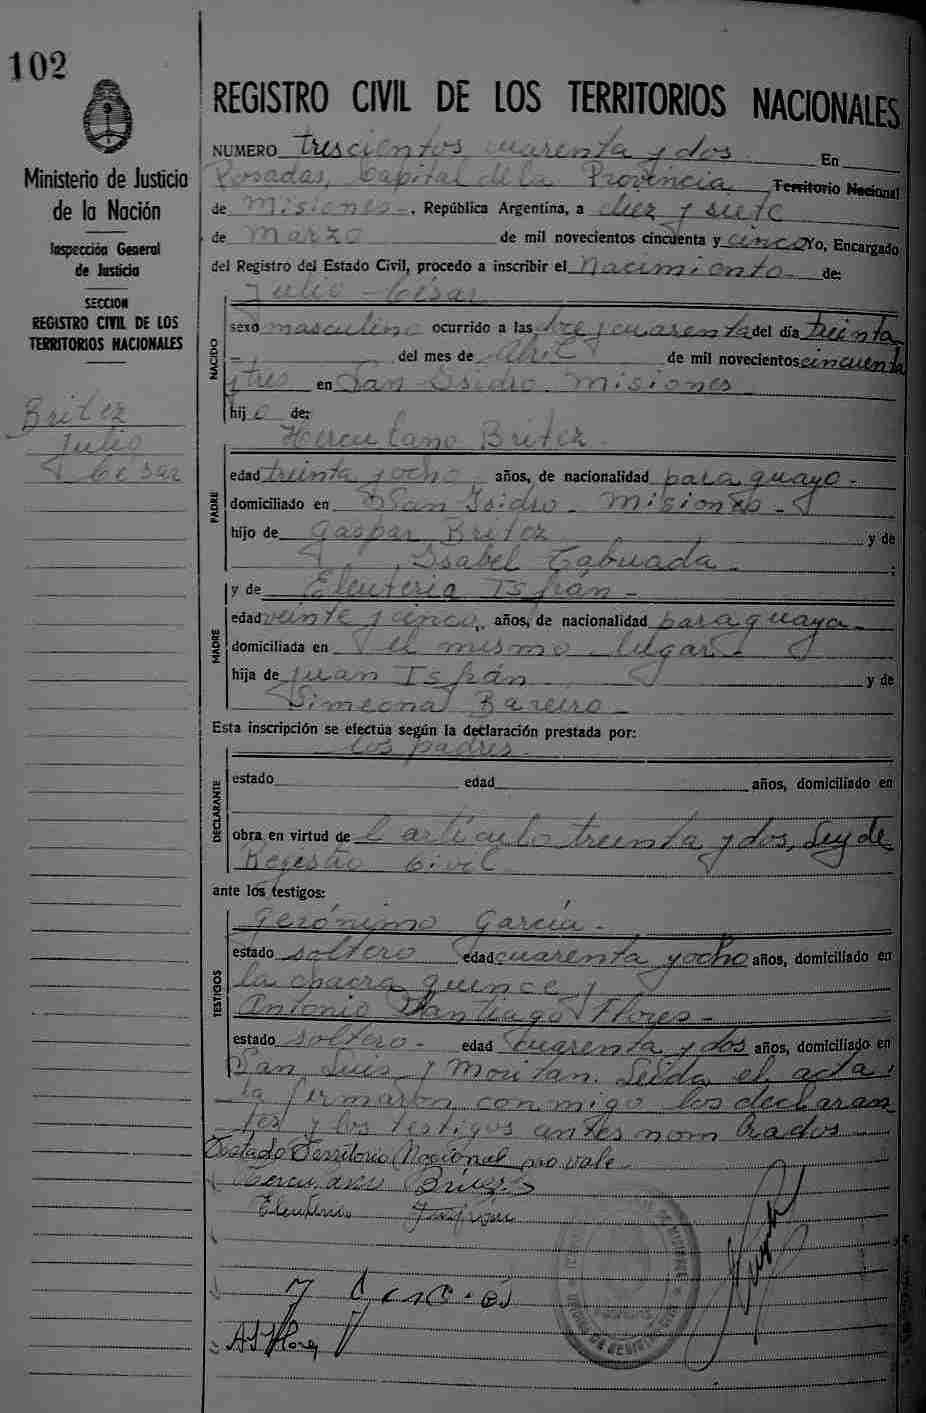 102
Ministerio de Justicia
de la Nación
Inspección General
de Justicia
SECCION
REGISTRO CIVIL DE LOS
TERRITORIOS NACIONALES
Britez
Julio
Cesar
REGISTRO CIVIL DE LOS TERRITORIOS NACIONALES
NUMERO trescientos cuarenta y dos. En
Posadas, Capital de la Provincia Territorio Nacional
de Misiones -, República Argentina, a diez y siete
de Marzo de mil novecientos cincuenta y cinco Yo, Encargado
del Registro del Estado Civil, procedo a inscribir el Nacimiento de:
Julio - César
NACIDO
sexo masculino ocurrido a las y cuarenta del día treinta
- del mes de Abril de mil novecientos cincuenta
y tres en San Isidro. Misiones.
hijo de:
PADRE
Herculano Britez -
edad treinta y ocho años, de nacionalidad paraguayo -
domiciliado en San Isidro - Misiones -
hijo de Gaspar Britez y de
Isabel Taburada -
y de Eleuteria Isfrán -
MADRE
edad veinte y cinco, años, de nacionalidad paraguaya -
domiciliada en el mismo lugar -
hija de Juan Isfrán y de
Simeona Bareiro -
Esta inscripción se efectúa según la declaración prestada por:
los padres
DECLARANTE
estado edad años, domiciliado en
obra en virtud del artículo treinta y dos, Ley de
Registro Civil
ante los testigos:
TESTIGOS
Gerónimo García -
estado soltero edad cuarenta y ocho años, domiciliado en
la chacra quince y
Antonio Santiago Flores -
estado soltero - edad cuarenta y dos años, domiciliado en
San Luis y Moritan. Leida el acta,
la firmaron conmigo los declaran
tes y los testigos antes nombrados
Testado Territorio Nacional no vale
Herculano Britez
Eleuteria Isfran
A S Flores